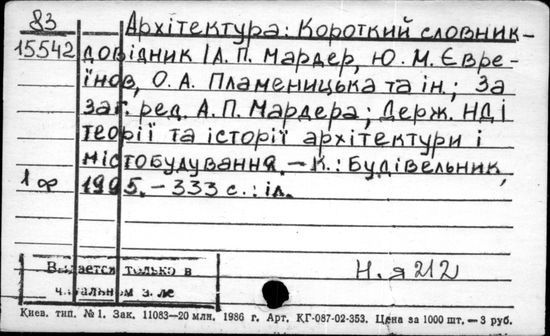 83
Архітектура: Короткий словник-
15542 довідник / А. П. Мардер, Ю. М. Євре-
їнов, О. А. Пламеницька та ін.; За
заг. ред. А. П. Мардера; Держ. НДІ
теорії та історії архітектури і
містобудування. – К.: Будівельник,
1995. – 333 с.: іл.
Выдается только в
читальном зале
Н. я 212
Киев. тип. № 1. Зак. 11083—20 млн. 1986 г. Арт. КГ-087-02-353. Цена за 1000 шт. — 3 руб.